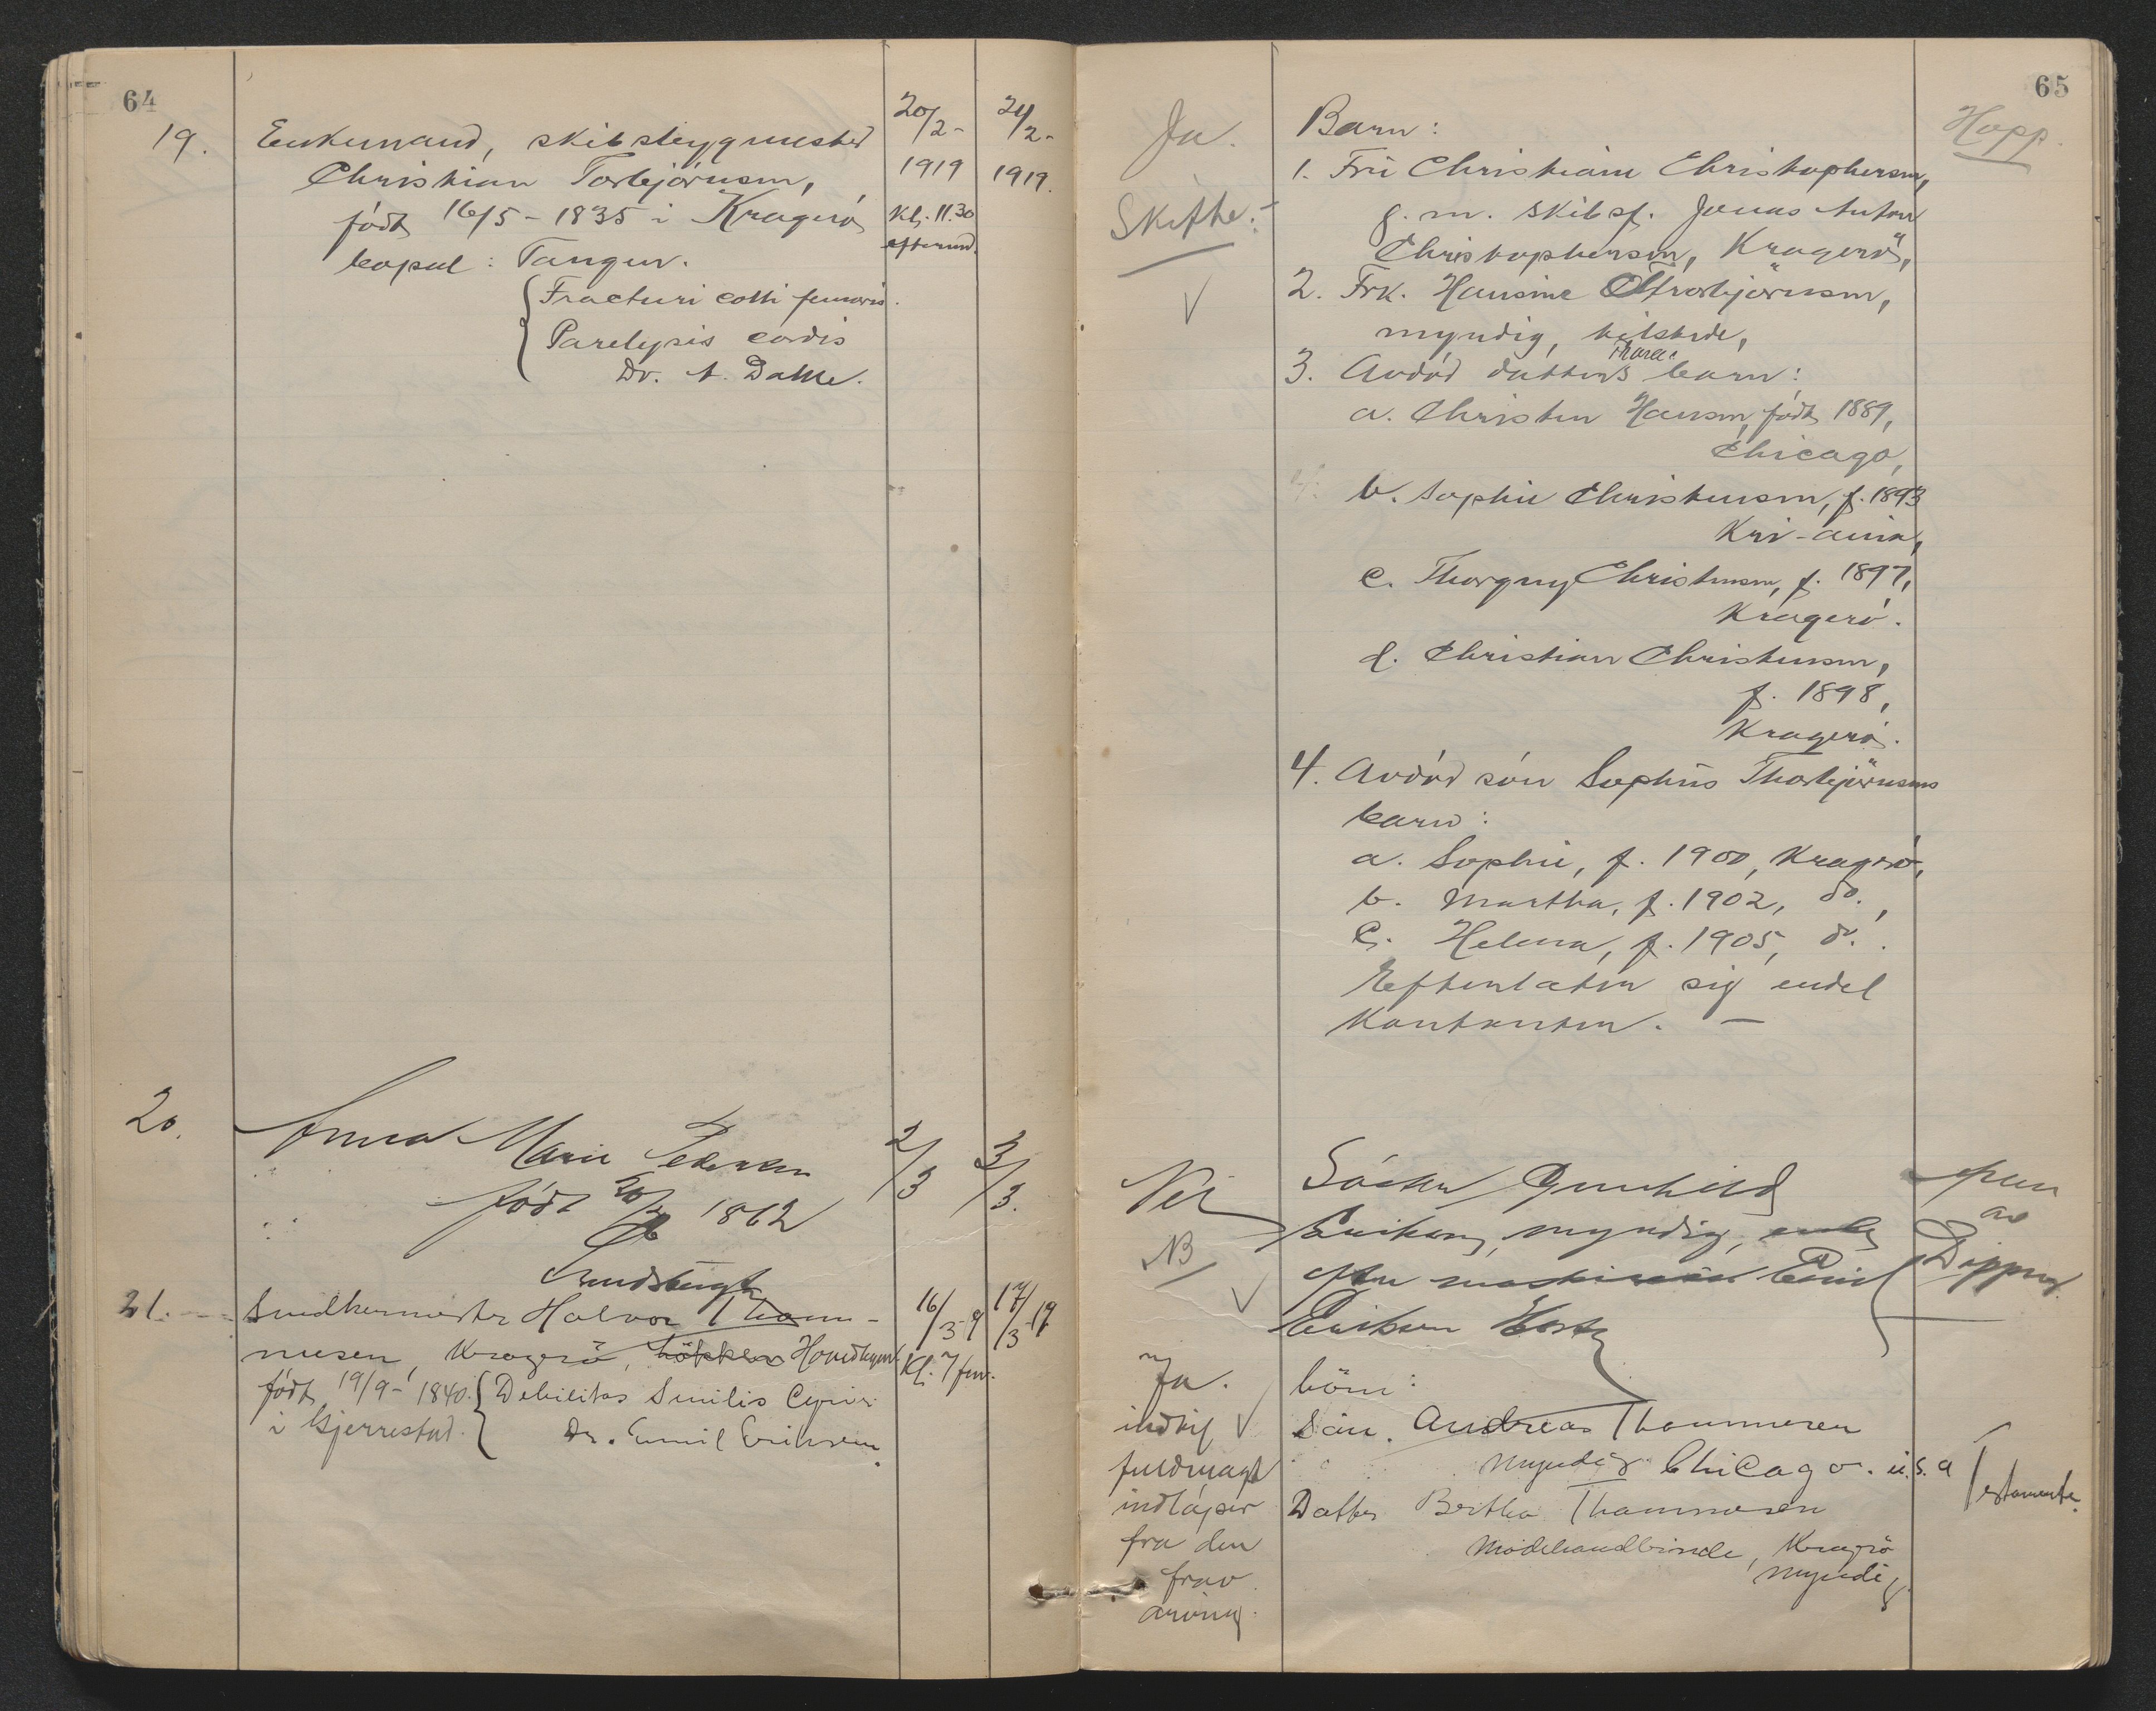 64
19.
Enkemand, skibsbygmester
Christian Torbjörnsen,
født 16/5 - 1835 i Kragerö
bopæl: Tangen.
Fracturi colli femoris.
Paralysis cordis
Dr. A. Dahle.
20/2 -
1919
Kl. 11.30
efterm.
24/2 -
1919.
20.
Anna Marie Pedersen
født 20/ 1862
2/3
3/3.
21.
Snedkermester Halvor Thom-
mesen, Kragerö,
født 19/9 - 1840.
i Gjerrestad.
Debilitas Senilis
Dr. Emil Eriksen.
16/3-9
Kl. 7 fm.
17/3-19
65
Ja.
Skifte.
Barn:
1. Fru Christiane Christophersen,
g. m. skibsf. Jonas Anton
Christophersen, Kragerö,
2. Frk. Hansine Thorbjörnsen,
myndig, tilstede,
3. Avdöd datter Thoras barn:
a. Christen Hansen, født 1889,
Chicago,
b. Sophie Christensen, f. 1893
Kri-ania,
c. Thorgny Christensen, f. 1897,
Kragerö.
d. Christian Christensen,
f. 1898,
Kragerö.
4. Avdöd sön Sophus Thorbjörnsens
barn:
a. Sophie, f. 1900, Kragerö,
b. Martha, f. 1902, do.,
c. Helena, f. 1905, do.
Efterlater sig endel
Kontanter. —
Hopp.
Nei
NB
Söster Gunhild
Eriksen, myndig, enke
efter Emil
Eriksen
av
Ja.
indkif
fuldmagt
indløper
fra den
frav.
arving.
börn:
Sön. Andreas Thommesen
myndig Chicago. u.s.a
Datter Bertha Thommesen
Modehandlerinde, Kragerö
myndig.
Testamente.